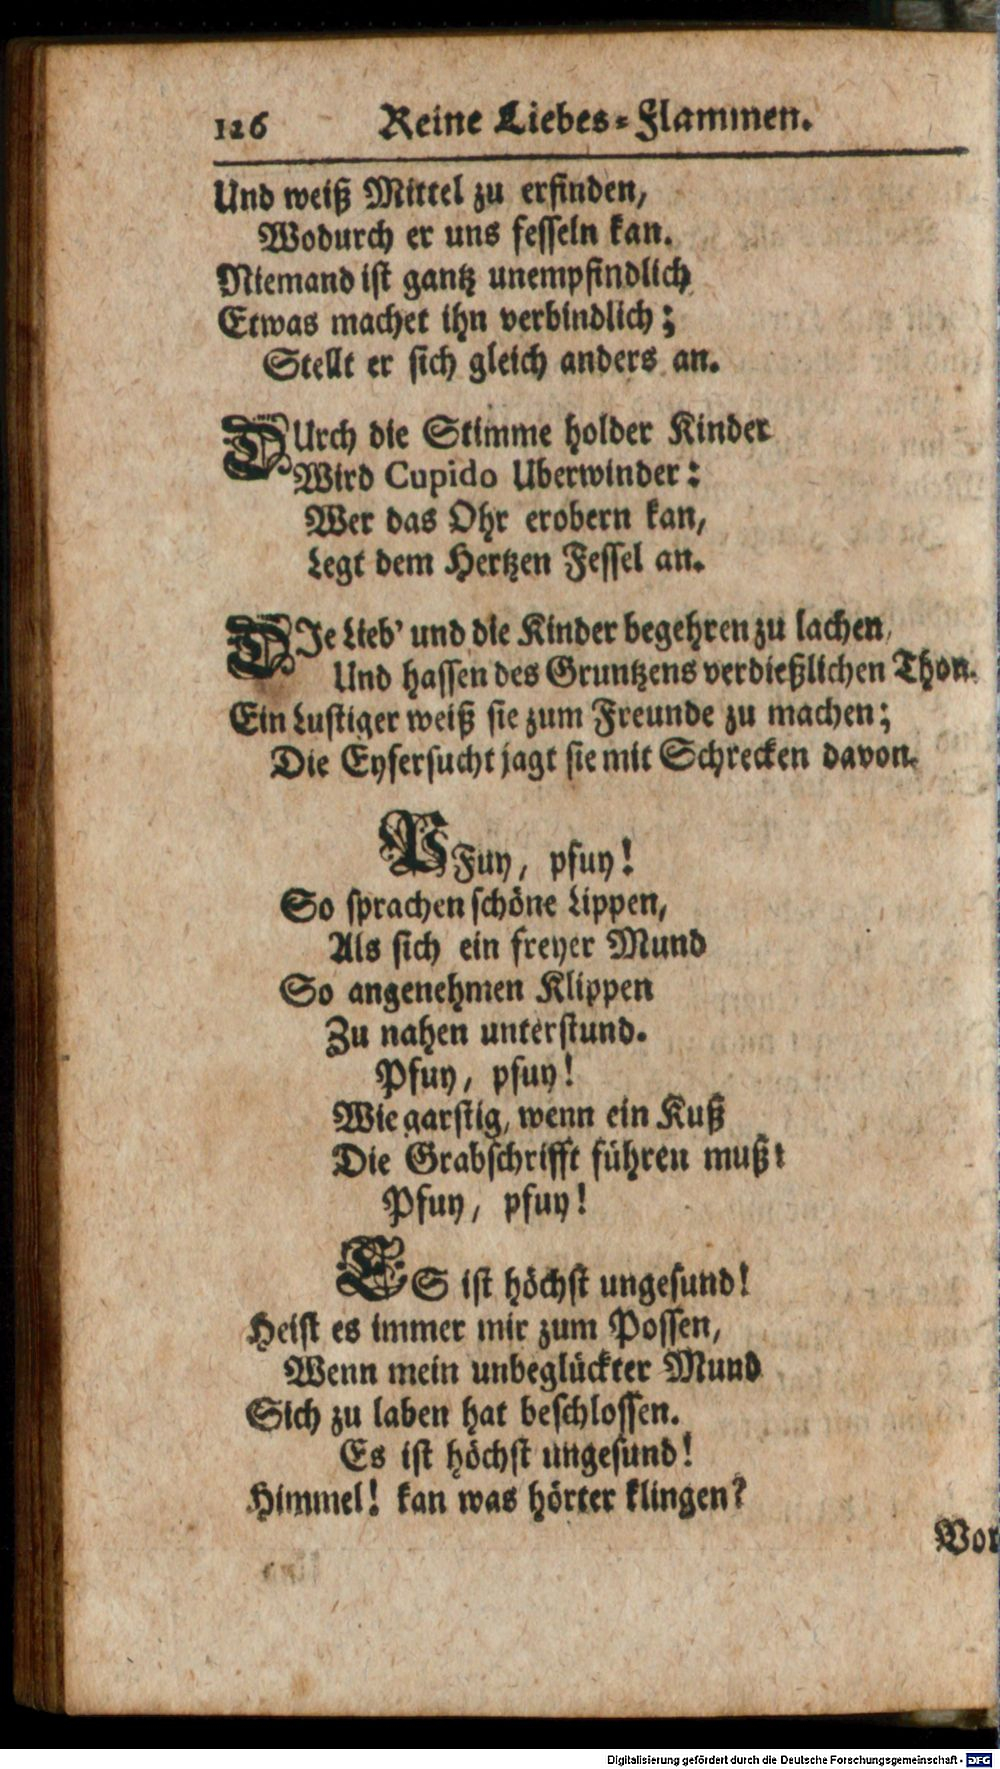 126 Reine Liebes-Flammen.
Und weiß Mittel zu erfinden,
Wodurch er uns fesseln kan.
Niemand ist gantz unempfindlich
Etwas machet ihn verbindlich;
Stellt er sich gleich anders an.
DUrch die Stimme holder Kinder
Wird Cupido Uberwinder:
Wer das Ohr erobern kan,
Legt dem Hertzen Fessel an.
DIe Lieb' und die Kinder begehren zu lachen,
Und hassen des Gruntzens verdießlichen Thon.
Ein Lustiger weiß sie zum Freunde zu machen;
Die Eyfersucht jagt sie mit Schrecken davon.
PFuy, pfuy!
So sprachen schöne Lippen,
Als sich ein freyer Mund
So angenehmen Klippen
Zu nahen unterstund.
Pfuy, pfuy!
Wie garstig, wenn ein Kuß
Die Grabschrifft führen muß:
Pfuy, pfuy!
ES ist höchst ungesund!
Heist es immer mir zum Possen,
Wenn mein unbeglückter Mund
Sich zu laben hat beschlossen.
Es ist höchst ungesund!
Himmel! kan was hörter klingen?
Vor
Digitalisierung gefördert durch die Deutsche Forschungsgemeinschaft - DFG